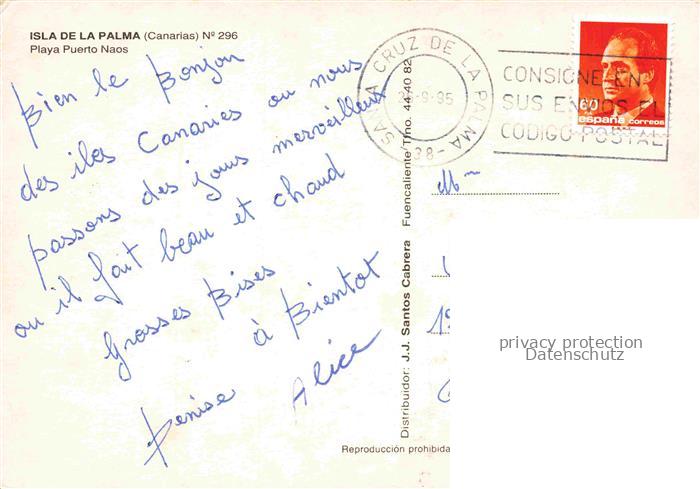 ISLA DE LA PALMA (Canarias) Nº 296
Playa Puerto Naos
Bien le Bonjou
des iles Canaries ou nous
passons des jours merveilleux
ou il fait beau et chaud
Grosses Bises
à Bientot
Denise Alice
Distribuidor: J.J. Santos Cabrera Fuencaliente/Tfno. 44 40 82
Reproducción prohibida
SANTA CRUZ DE LA PALMA
-9-95
38-
CONSIGNE EN
SUS ENVIOS EL
CODIGO POSTAL
60
españa correos
Mme
privacy protection
Datenschutz